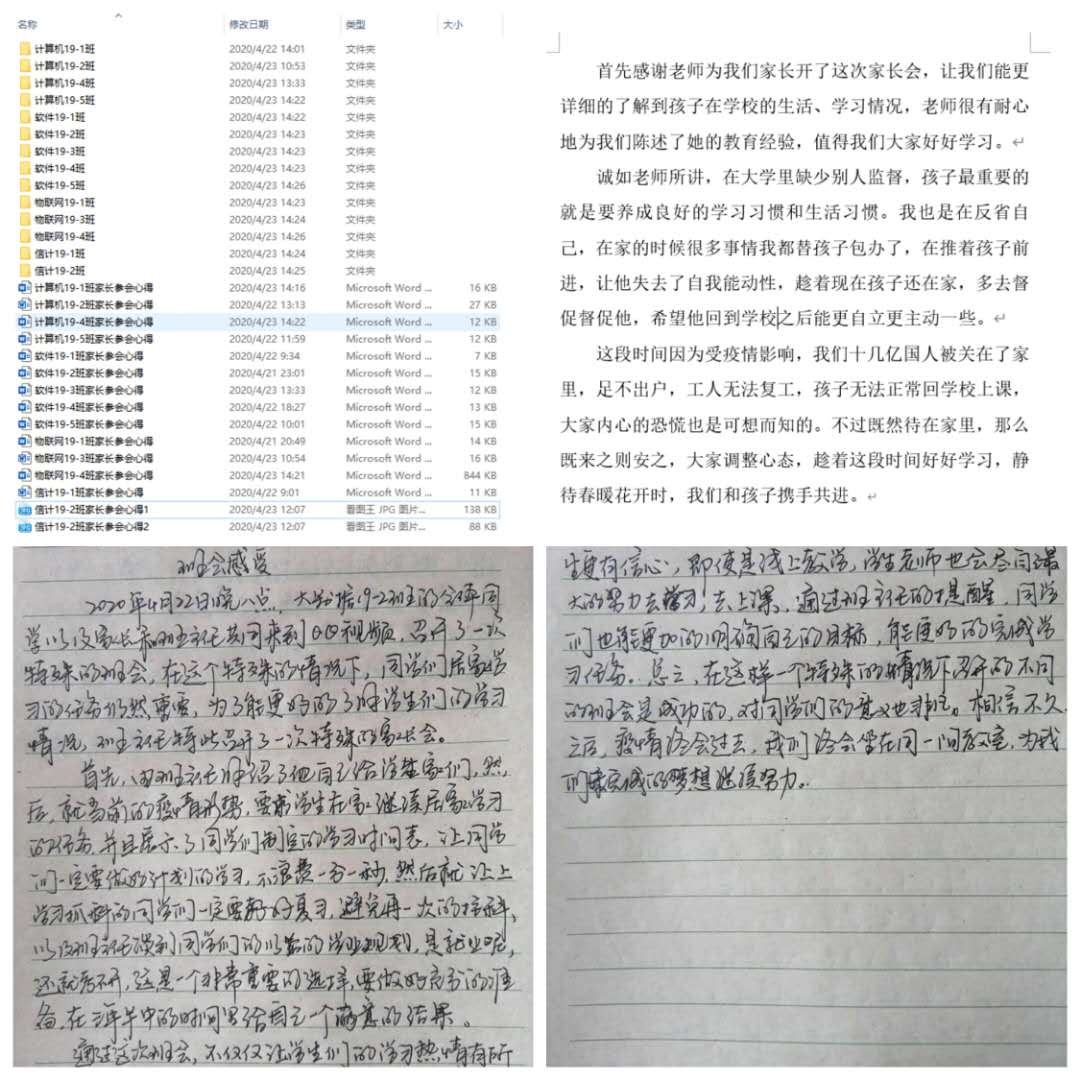 名称 修改日期 类型 大小
计算机19-1班 2020/4/22 14:01 文件夹
计算机19-2班 2020/4/23 10:53 文件夹
计算机19-4班 2020/4/23 13:33 文件夹
计算机19-5班 2020/4/23 14:22 文件夹
软件19-1班 2020/4/23 14:22 文件夹
软件19-2班 2020/4/23 14:23 文件夹
软件19-3班 2020/4/23 14:23 文件夹
软件19-4班 2020/4/23 14:23 文件夹
软件19-5班 2020/4/23 14:26 文件夹
物联网19-1班 2020/4/23 14:23 文件夹
物联网19-3班 2020/4/23 14:24 文件夹
物联网19-4班 2020/4/23 14:26 文件夹
信计19-1班 2020/4/23 14:24 文件夹
信计19-2班 2020/4/23 14:25 文件夹
计算机19-1班家长参会心得 2020/4/23 14:16 Microsoft Word ... 16 KB
计算机19-2班家长参会心得 2020/4/22 13:13 Microsoft Word ... 27 KB
计算机19-4班家长参会心得 2020/4/23 14:22 Microsoft Word ... 12 KB
计算机19-5班家长参会心得 2020/4/22 11:59 Microsoft Word ... 12 KB
软件19-1班家长参会心得 2020/4/22 9:34 Microsoft Word ... 7 KB
软件19-2班家长参会心得 2020/4/21 23:01 Microsoft Word ... 15 KB
软件19-3班家长参会心得 2020/4/23 13:33 Microsoft Word ... 12 KB
软件19-4班家长参会心得 2020/4/22 18:27 Microsoft Word ... 13 KB
软件19-5班家长参会心得 2020/4/22 10:01 Microsoft Word ... 15 KB
物联网19-1班家长参会心得 2020/4/21 20:49 Microsoft Word ... 14 KB
物联网19-3班家长参会心得 2020/4/23 10:54 Microsoft Word ... 16 KB
物联网19-4班家长参会心得 2020/4/23 14:21 Microsoft Word ... 844 KB
信计19-1班家长参会心得 2020/4/22 9:01 Microsoft Word ... 11 KB
信计19-2班家长参会心得1 2020/4/23 12:07 看图王 JPG 图片... 138 KB
信计19-2班家长参会心得2 2020/4/23 12:07 看图王 JPG 图片... 88 KB
首先感谢老师为我们家长开了这次家长会，让我们能更
详细的了解到孩子在学校的生活、学习情况，老师很有耐心
地为我们陈述了她的教育经验，值得我们大家好好学习。
诚如老师所讲，在大学里缺少别人监督，孩子最重要的
就是要养成良好的学习习惯和生活习惯。我也是在反省自
己，在家的时候很多事情我都替孩子包办了，在推着孩子前
进，让他失去了自我能动性，趁着现在孩子还在家，多去督
促督促他，希望他回到学校之后能更自立更主动一些。
这段时间因为受疫情影响，我们十几亿国人被关在了家
里，足不出户，工人无法复工，孩子无法正常回学校上课，
大家内心的恐慌也是可想而知的。不过既然待在家里，那么
既来之则安之，大家调整心态，趁着这段时间好好学习，静
待春暖花开时，我们和孩子携手共进。
班会感受
2020年4月22日晚八点，大数据19-2班的全体同
学以及家长和班主任共同来到QQ视频，召开了一次
特殊的班会，在这个特殊的情况下，同学们居家学
习的任务仍然重要，为了能更好的了解学生们的学习
情况，班主任特此召开了一次特殊的家长会。
首先，由班主任介绍了他自己给学生家长们，然
后，就当前的疫情形势，要求学生在家继续居家学习
的任务，并且展示了同学们制定的学习时间表，让同学
们一定要做好计划的学习，不浪费一分一秒，然后就让上
学习抓科的同学们一定要好好复习，避免再一次的挂科，
以及班主任谈到同学们的以后的学业规划，是就业呢，
还就考研，这是一个非常重要的选择，要做好充分的准
备，在三年半中的时间里给自己一个满意的结果。
通过这次班会，不仅仅让学生们的学习热情有所
生更有信心，即使是线上教学，学生老师也会尽自己最
大的努力去学习，去上课，通过班主任的提醒，同学
们也能更加的明确自己的目标，能更好的完成学
习任务。总之，在这样一个特殊的情况下召开的不同
的班会是成功的，对同学们的意义也非凡。相信不久
之后，疫情终会过去，我们终会坐在同一间教室，为我
们未完成的梦想继续努力。